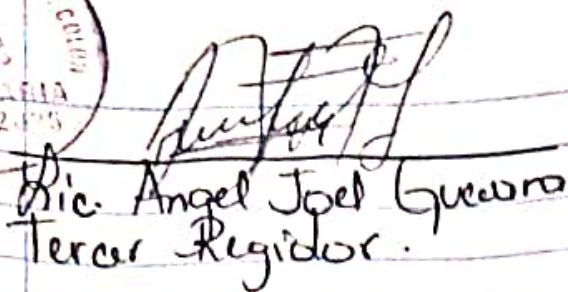 COLON
Lic. Angel Joel Guevara
Tercer Regidor.